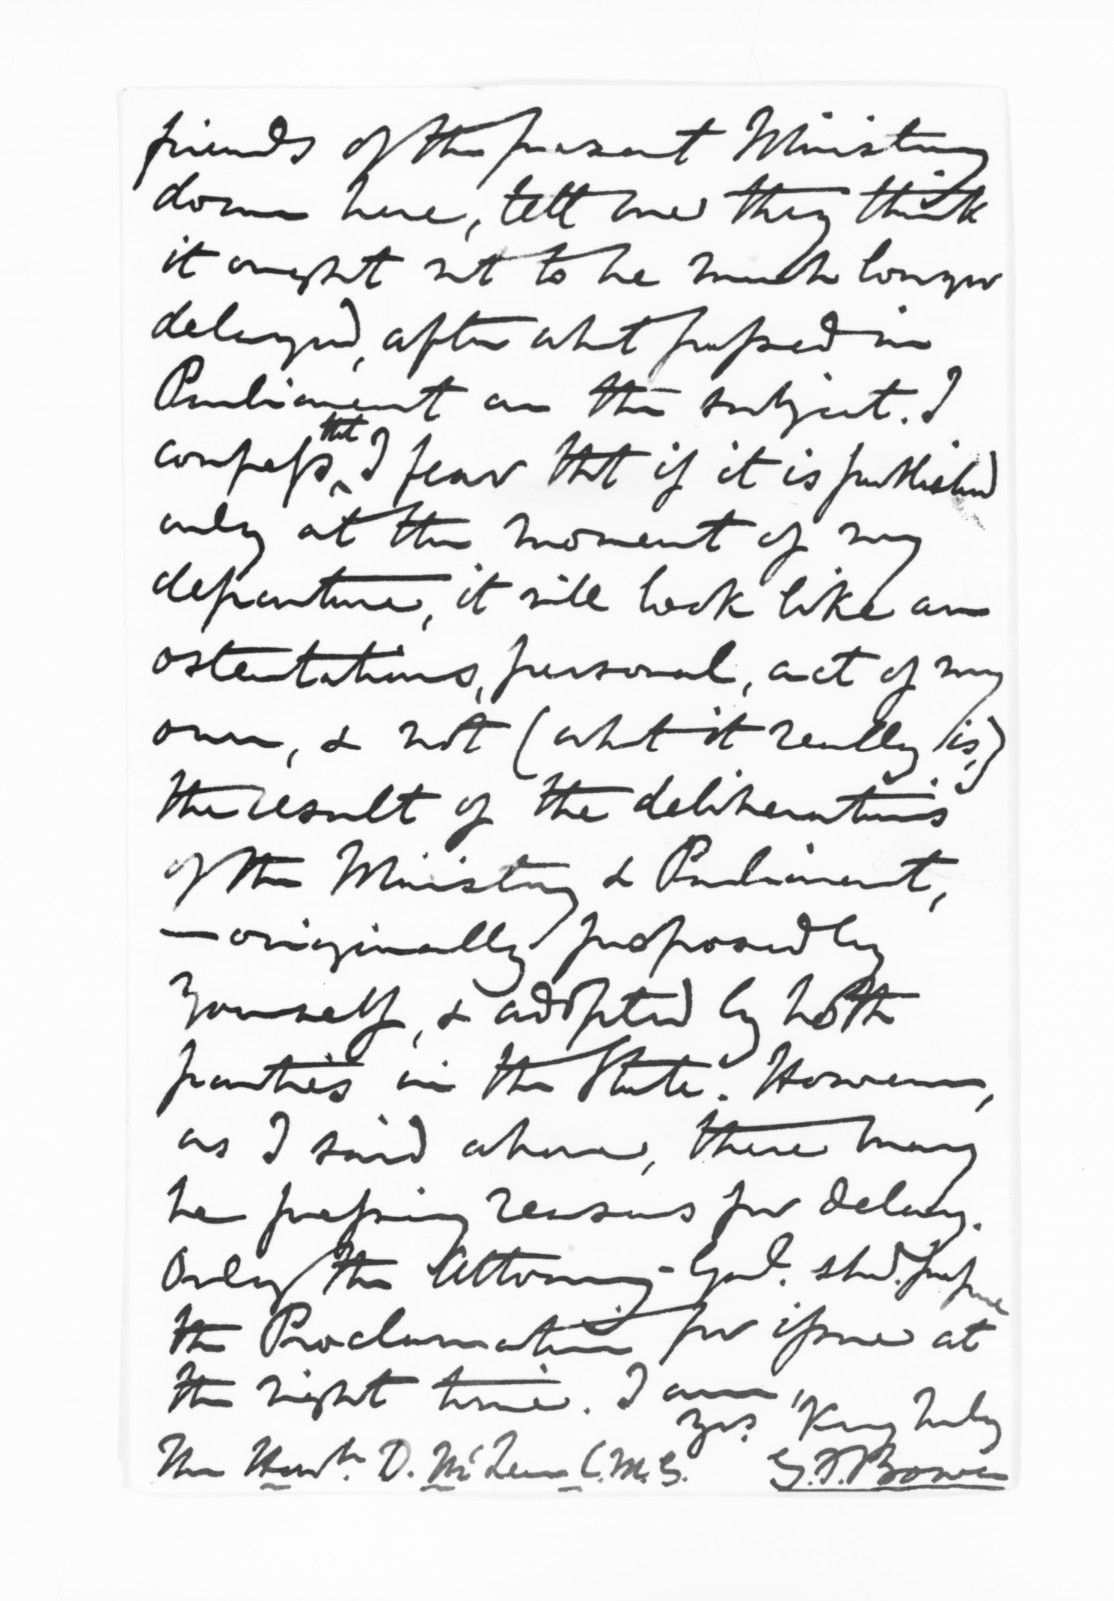 friends of the present Ministry
down here, tell me they think
it ought not to be much longer
delayed, after what passed in
Parliament on the subject. I
confess that I fear that if it is published
only at the moment of my
departure, it will look like an
ostentatious, personal, act of my
own, & not (what it really is,)
the result of the deliberations
of the Ministry & Parliament,
— originally proposed by
yourself, & adopted by both
parties in the State. However,
as I said above, there may
be pressing reasons for delay.
Only the Attorney-Genl. shd. prepare
the Proclamation for issue at
the right time. I am,
yrs. very truly
The Honble. D. McLean C.M.G. G.F. Bowen